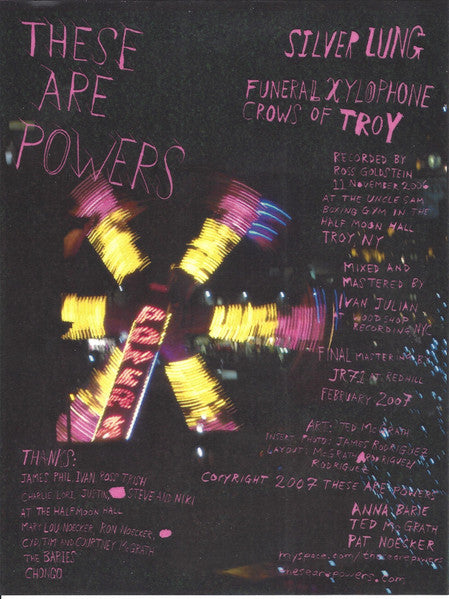 THESE
ARE
POWERS
SILVER LUNG
FUNERAL XYLOPHONE
CROWS OF TROY
RECORDED BY
ROSS GOLDSTEIN
11 NOVEMBER 2006
AT THE UNCLE SAM
BOXING GYM IN THE
HALF MOON HALL
TROY, NY
MIXED AND
MASTERED BY
IVAN JULIAN
WOOD SHOP
RECORDING NYC
FINAL MASTERING BY
JR71 AT REDHILL
FEBRUARY 2007
ART: TED McGRATH
INSERT PHOTO: JAMES RODRIGUEZ
LAYOUT: McGRATH RODRIGUEZ/
RODRIGUEZ
COPYRIGHT 2007 THESE ARE POWERS
ANNA BARIE
TED McGRATH
PAT NOESKER
myspace.com/thesearepowers
thesearepowers.com
POWERS
THANKS:
JAMES PHIL IVAN ROSS TRISH
CHARLIE LORI, JUSTIN, STEVE AND NIKI
AT THE HALFMOON HALL
MARY LOU NOECKER, RON NOECKER,
CYD, TIM AND COURTNEY McGRATH
THE BABIES
CHONGO